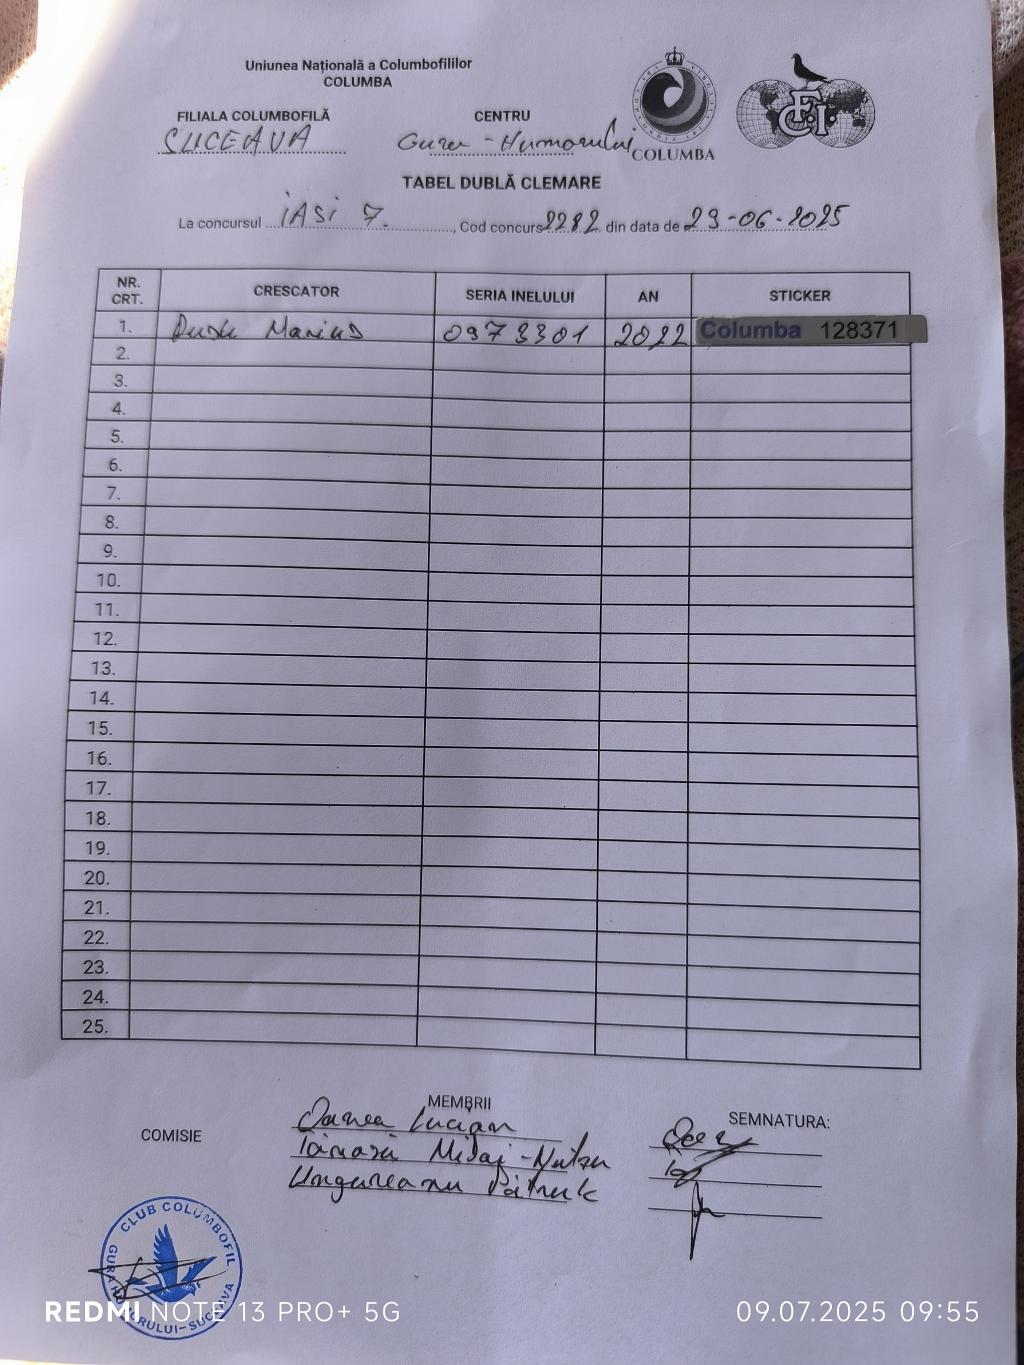 Uniunea Națională a Columbofililor
COLUMBA
FILIALA COLUMBOFILĂ
SUCEAVA
CENTRU
Gura-Humorului
COLUMBA
F.C.I.
TABEL DUBLĂ CLEMARE
La concursul iASi 7, Cod concurs 2282 din data de 29-06-2025
NR. CRT. CRESCATOR SERIA INELULUI AN STICKER
1. Marius 0973301 2022 Columba 128371
2.
3.
4.
5.
6.
7.
8.
9.
10.
11.
12.
13.
14.
15.
16.
17.
18.
19.
20.
21.
22.
23.
24.
25.
COMISIE
MEMBRII
SEMNATURA:
Oanea Lucian
Mihai-Nutzu
Ungureanu
CLUB COLUMBOFIL
GURA HUMORULUI-SUCEAVA
REDMI NOTE 13 PRO+ 5G
09.07.2025 09:55